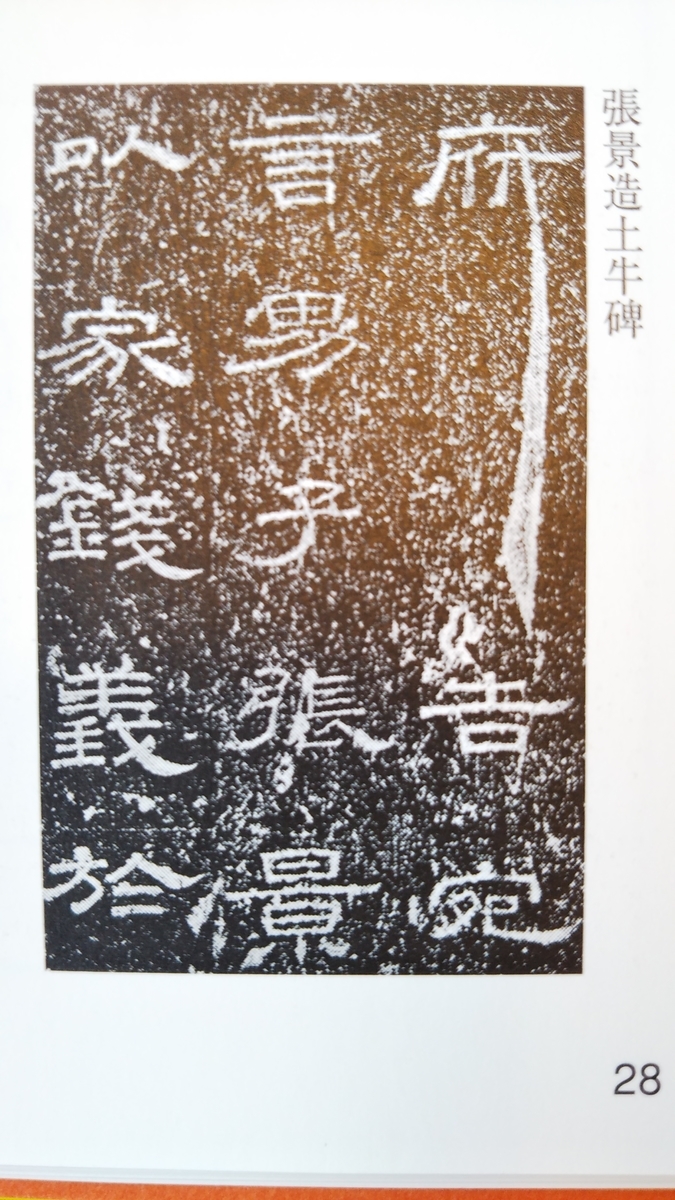 張景造土牛碑
府告宛
言男子張景
以家錢義於
28